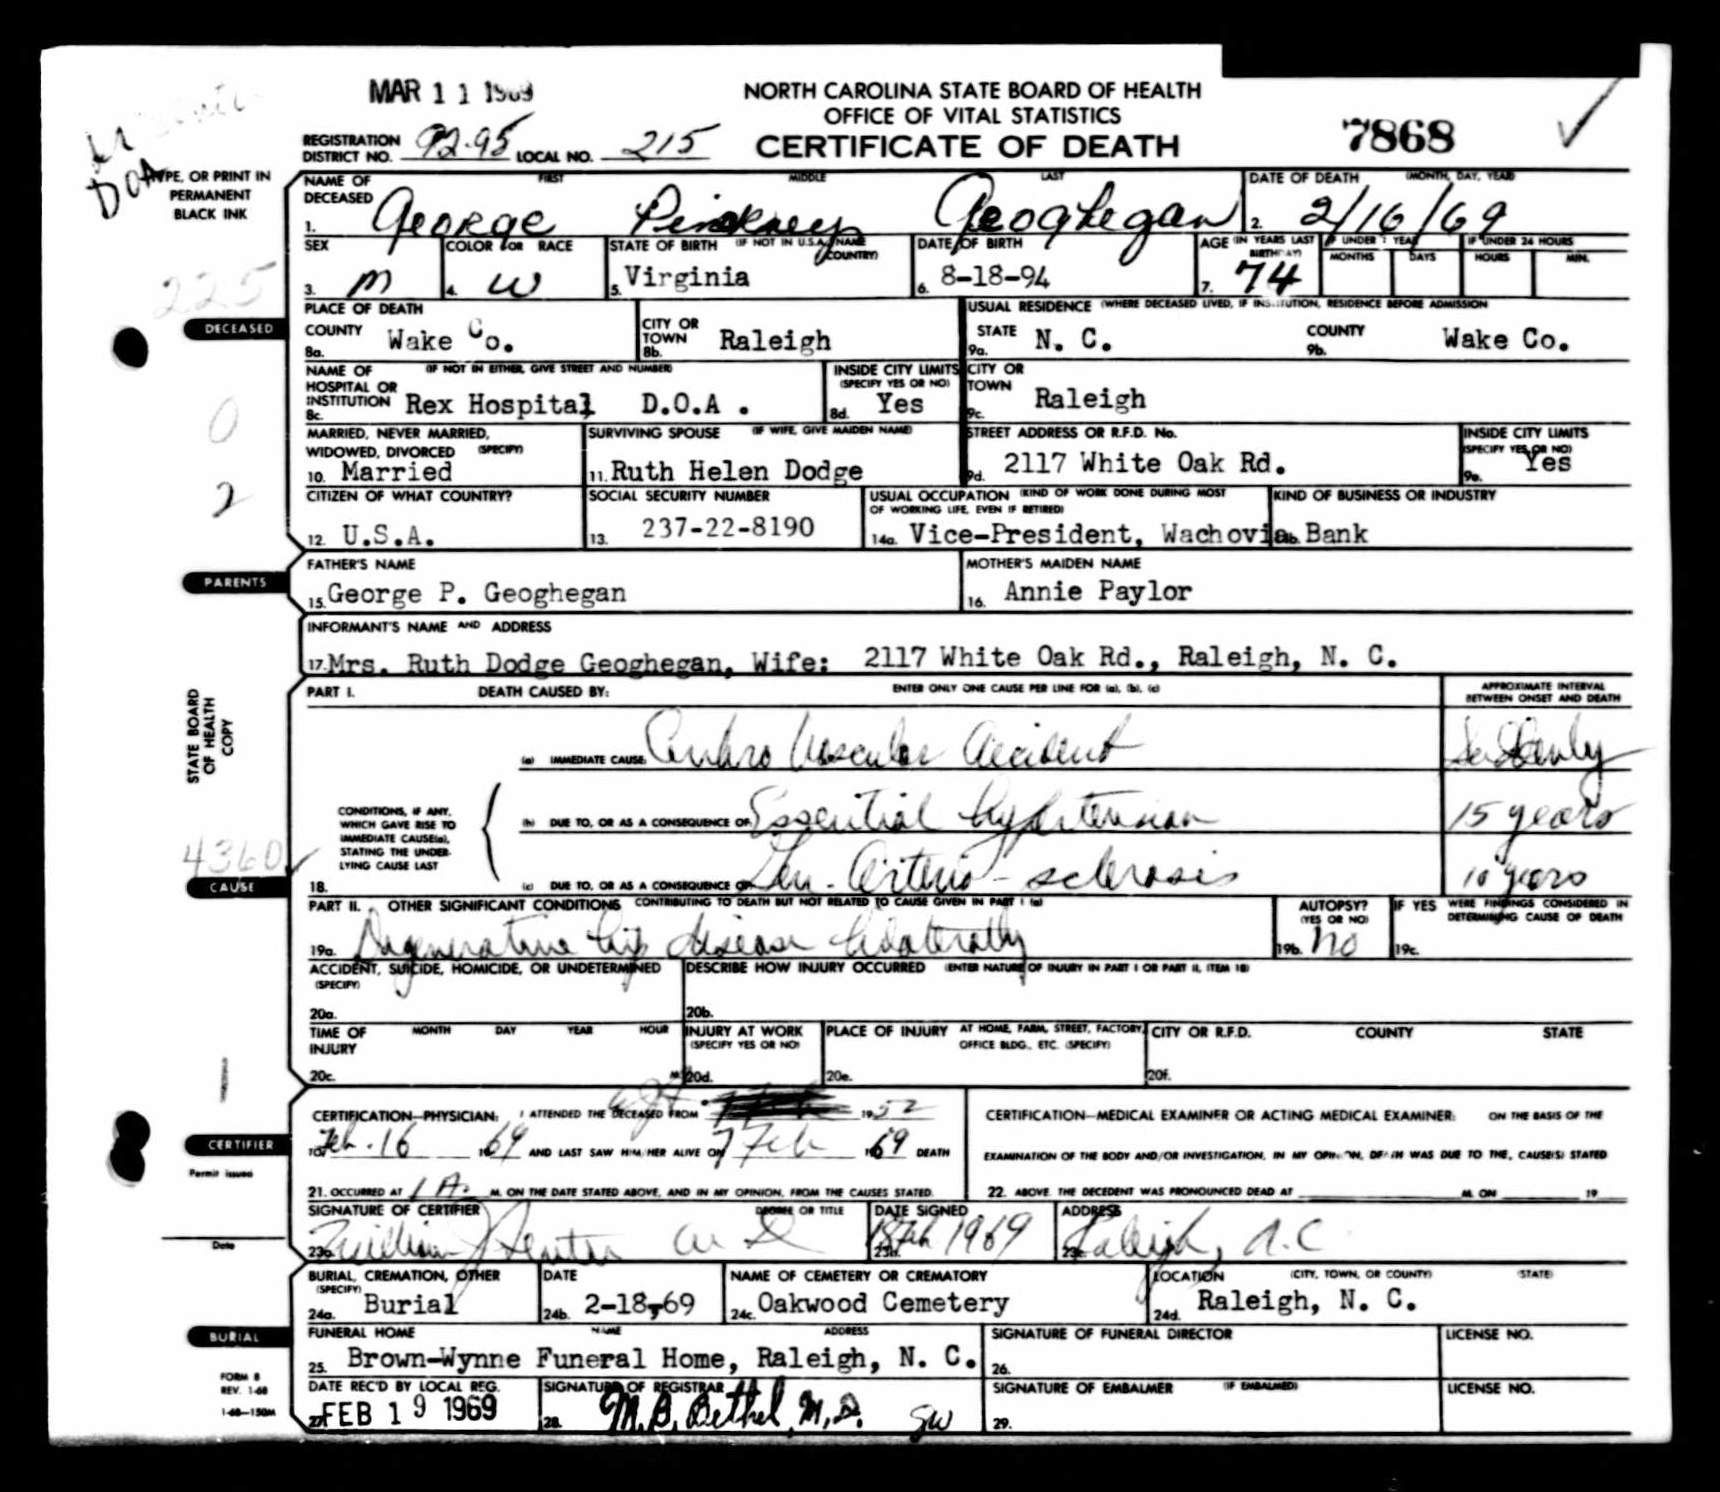 MAR 11 1969
NORTH CAROLINA STATE BOARD OF HEALTH
OFFICE OF VITAL STATISTICS
CERTIFICATE OF DEATH
7868
REGISTRATION DISTRICT NO. 92-95 LOCAL NO. 215
DOA
TYPE, OR PRINT IN
PERMANENT
BLACK INK
NAME OF DECEASED FIRST MIDDLE LAST
1. George Pinkney Geoghegan
DATE OF DEATH (MONTH, DAY, YEAR)
2. 2/16/69
SEX
3. M
COLOR OR RACE
4. W
STATE OF BIRTH (IF NOT IN U.S.A., NAME COUNTRY)
5. Virginia
DATE OF BIRTH
6. 8-18-94
AGE (IN YEARS LAST BIRTHDAY)
7. 74
IF UNDER 1 YEAR
MONTHS DAYS
IF UNDER 24 HOURS
HOURS MIN.
225
DECEASED
PLACE OF DEATH
COUNTY
8a. Wake Co.
CITY OR TOWN
8b. Raleigh
USUAL RESIDENCE (WHERE DECEASED LIVED, IF INSTITUTION, RESIDENCE BEFORE ADMISSION
STATE
9a. N. C.
COUNTY
9b. Wake Co.
NAME OF HOSPITAL OR INSTITUTION (IF NOT IN EITHER, GIVE STREET AND NUMBER)
8c. Rex Hospital D.O.A .
INSIDE CITY LIMITS (SPECIFY YES OR NO)
8d. Yes
CITY OR TOWN
9c. Raleigh
0
MARRIED, NEVER MARRIED, WIDOWED, DIVORCED (SPECIFY)
10. Married
SURVIVING SPOUSE (IF WIFE, GIVE MAIDEN NAME)
11. Ruth Helen Dodge
STREET ADDRESS OR R.F.D. No.
9d. 2117 White Oak Rd.
INSIDE CITY LIMITS (SPECIFY YES OR NO)
9e. Yes
2
CITIZEN OF WHAT COUNTRY?
12. U.S.A.
SOCIAL SECURITY NUMBER
13. 237-22-8190
USUAL OCCUPATION (KIND OF WORK DONE DURING MOST OF WORKING LIFE, EVEN IF RETIRED)
KIND OF BUSINESS OR INDUSTRY
14a. Vice-President, Wachovia Bank
PARENTS
FATHER'S NAME
15. George P. Geoghegan
MOTHER'S MAIDEN NAME
16. Annie Paylor
INFORMANT'S NAME AND ADDRESS
17. Mrs. Ruth Dodge Geoghegan, Wife: 2117 White Oak Rd., Raleigh, N. C.
STATE BOARD
OF HEALTH
COPY
PART I. DEATH CAUSED BY: ENTER ONLY ONE CAUSE PER LINE FOR (a), (b), (c)
APPROXIMATE INTERVAL BETWEEN ONSET AND DEATH
(a) IMMEDIATE CAUSE: Cerebro Vascular Accident Suddenly
CONDITIONS, IF ANY,
WHICH GAVE RISE TO
IMMEDIATE CAUSE(a),
STATING THE UNDER-
LYING CAUSE LAST
(b) DUE TO, OR AS A CONSEQUENCE OF: Essential hypertension 15 years
4360
CAUSE
18.
(c) DUE TO, OR AS A CONSEQUENCE OF: Gen. Arterio-sclerosis 10 years
PART II. OTHER SIGNIFICANT CONDITIONS CONTRIBUTING TO DEATH BUT NOT RELATED TO CAUSE GIVEN IN PART I (a)
19a. Degenerative hip disease bilaterally
AUTOPSY? (YES OR NO)
19b. no
IF YES WERE FINDINGS CONSIDERED IN DETERMINING CAUSE OF DEATH
19c.
ACCIDENT, SUICIDE, HOMICIDE, OR UNDETERMINED (SPECIFY)
20a.
DESCRIBE HOW INJURY OCCURRED (ENTER NATURE OF INJURY IN PART I OR PART II, ITEM 18)
20b.
TIME OF INJURY MONTH DAY YEAR HOUR
20c. M
INJURY AT WORK (SPECIFY YES OR NO)
20d.
PLACE OF INJURY AT HOME, FARM, STREET, FACTORY, OFFICE BLDG., ETC. (SPECIFY)
20e.
CITY OR R.F.D. COUNTY STATE
20f.
1
CERTIFIER
CERTIFICATION—PHYSICIAN: I ATTENDED THE DECEASED FROM 1952
TO Feb. 16 1969 AND LAST SAW HIM/HER ALIVE ON 7 Feb 1969 DEATH
21. OCCURRED AT 1 A. M. ON THE DATE STATED ABOVE, AND IN MY OPINION, FROM THE CAUSES STATED.
CERTIFICATION—MEDICAL EXAMINER OR ACTING MEDICAL EXAMINER: ON THE BASIS OF THE
EXAMINATION OF THE BODY AND/OR INVESTIGATION, IN MY OPINION, DEATH WAS DUE TO THE, CAUSE(S) STATED
22. ABOVE. THE DECEDENT WAS PRONOUNCED DEAD AT M. ON 19
Permit issued
Date
SIGNATURE OF CERTIFIER DEGREE OR TITLE
23a. William M D
DATE SIGNED
23b. 18 Feb 1969
ADDRESS
23c. Raleigh, N.C
BURIAL
BURIAL, CREMATION, OTHER (SPECIFY)
24a. Burial
DATE
24b. 2-18-69
NAME OF CEMETERY OR CREMATORY
24c. Oakwood Cemetery
LOCATION (CITY, TOWN, OR COUNTY) (STATE)
24d. Raleigh, N. C.
FUNERAL HOME NAME ADDRESS
25. Brown-Wynne Funeral Home, Raleigh, N. C.
SIGNATURE OF FUNERAL DIRECTOR
26.
LICENSE NO.
FORM 8
REV. 1-68
1-68—150M
DATE REC'D BY LOCAL REG.
27. FEB 19 1969
SIGNATURE OF REGISTRAR
28. M.B. Bethel, M.D. SW
SIGNATURE OF EMBALMER (IF EMBALMED)
29.
LICENSE NO.